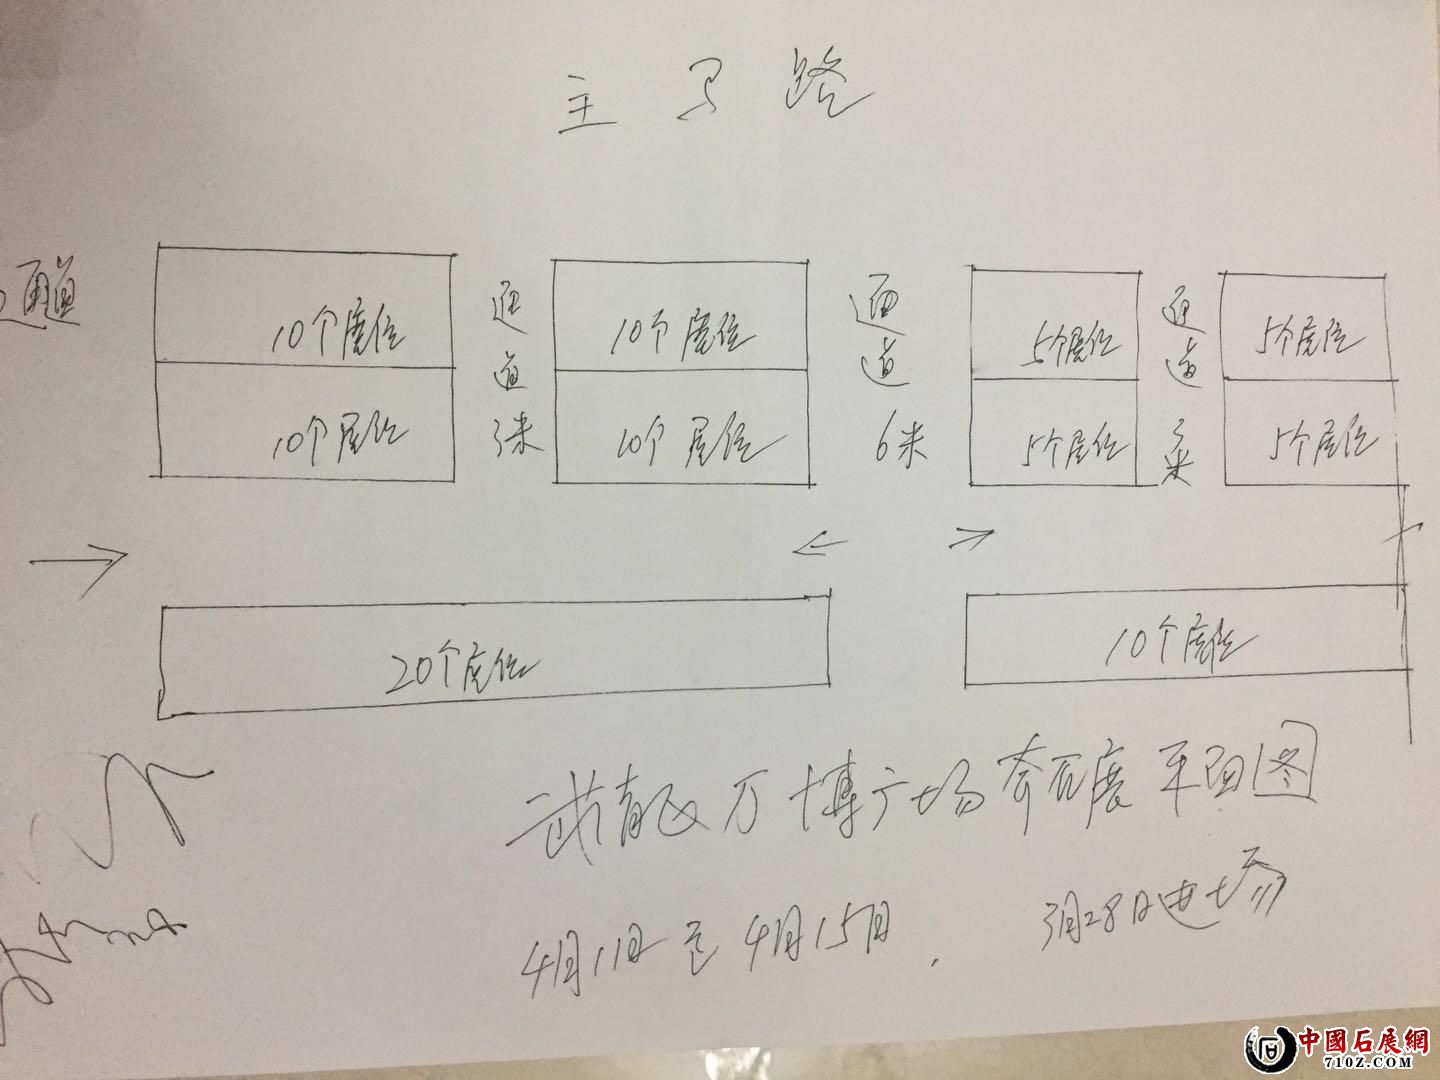 主 路
通道
10个展位
通道3米
10个展位
通道6米
5个展位
通道3米
5个展位
10个展位
10个展位
5个展位
5个展位
20个展位
10个展位
万博广场奇石展平面图
4月1日至4月15日.
3月28日进场
中國石展網
710Z.COM